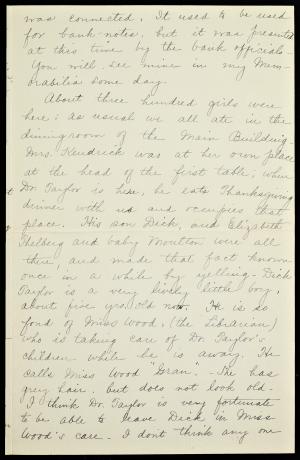 was connected. It used to be used
for bank-notes, but it was presented
at this time by the bank officials.
You will see mine in my Mem-
orabilia some day.
About three hundred girls were
here; as usual we all ate in the
diningroom of the Main Building.
Mrs. Kendrick was at her own place
at the head of the first table; when
Dr. Taylor is here, he eats Thanksgiving
dinner with us and occupies that
place. His son Dick, and Elizabeth
Thelberg and baby Moulton were all
there and made that fact known
once in a while by yelling. Dick
Taylor is a very lively little boy,
about five yrs. old now. He is so
fond of Miss Wood, (the Librarian)
who is taking care of Dr. Taylor's
children while he is away. He
calls Miss Wood "Gran". She has
grey hair, but does not look old.
I think Dr. Taylor is very fortunate
to be able to leave Dick in Miss
Wood's care. I dont think any one